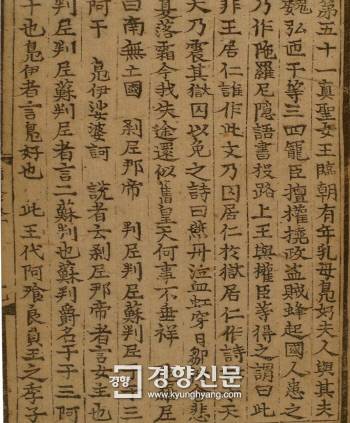 第五十一真聖女王臨朝有年乳母鳧好夫人與其夫
魏弘匝干等三四寵臣擅權撓政盜賊蜂起國人患之
乃作陁羅尼隱語書投路上王與權臣等得之謂曰此
非王居仁誰作此文乃囚居仁於獄居仁作詩天
天乃震其獄囚以免之詩曰燕丹泣血虹穿日鄒悲
夏落霜今我失途還似舊皇天何事不垂祥尼
曰南無亡國 刹尼那帝 判尼判尼蘇判尼三
阿干 鳧伊娑婆訶 說者云刹尼那帝者言女王也
判尼判尼蘇判尼者言二蘇判也蘇判爵名于于三阿
干也鳧伊者言鳧好也 此王代阿飡良員王之季子
경향 경향신문
www.kyunghyang.com